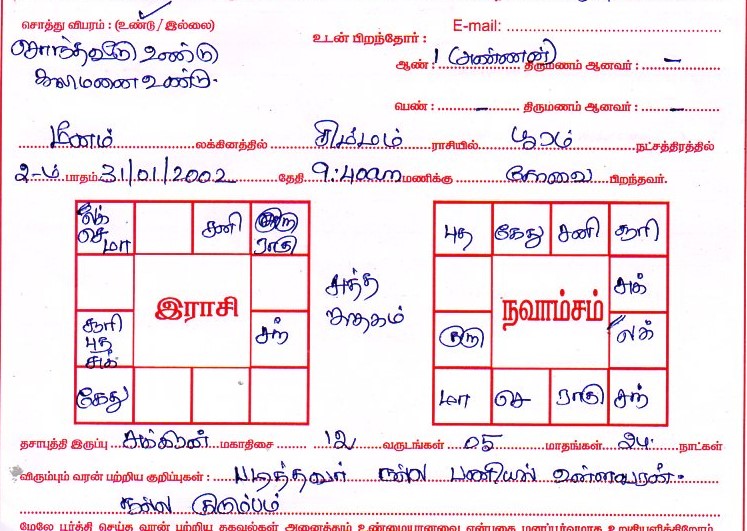 சொத்து விபரம் : (உண்டு / இல்லை) E-mail:
சொந்தவீடு உண்டு உடன் பிறந்தோர் :
காலிமனை உண்டு. ஆண் : 1 (அண்ணன்) திருமணம் ஆனவர் : –
பெண் : – திருமணம் ஆனவர் : –
மீனம் லக்கினத்தில் சிம்மம் ராசியில் பூரம் நட்சத்திரத்தில்
2-ம் பாதம் 31/01/2002 தேதி 9:40am மணிக்கு கோவை பிறந்தவர்.
லக் செ மா சனி குரு ராகு
இராசி
சூரி புத சுக் சந்
கேது
சுத்த ஜாதகம்
புத கேது சனி சூரி
சுக்
நவாம்சம்
குரு லக்
மா செ ராகு சந்
தசாபுத்தி இருப்பு சுக்கிரன் மகாதிசை 12 வருடங்கள் 05 மாதங்கள் 24 நாட்கள்
விரும்பும் வரன் பற்றிய குறிப்புகள் : படித்தவர் நல்ல பணியில் உள்ளவரன்.
நல்ல குடும்பம்
மேலே பூர்த்தி செய்த வரன் பற்றிய தகவல்கள் அனைத்தும் உண்மையானவை என்பதை மனப்பூர்வமாக உறுதியளிக்கிறோம்